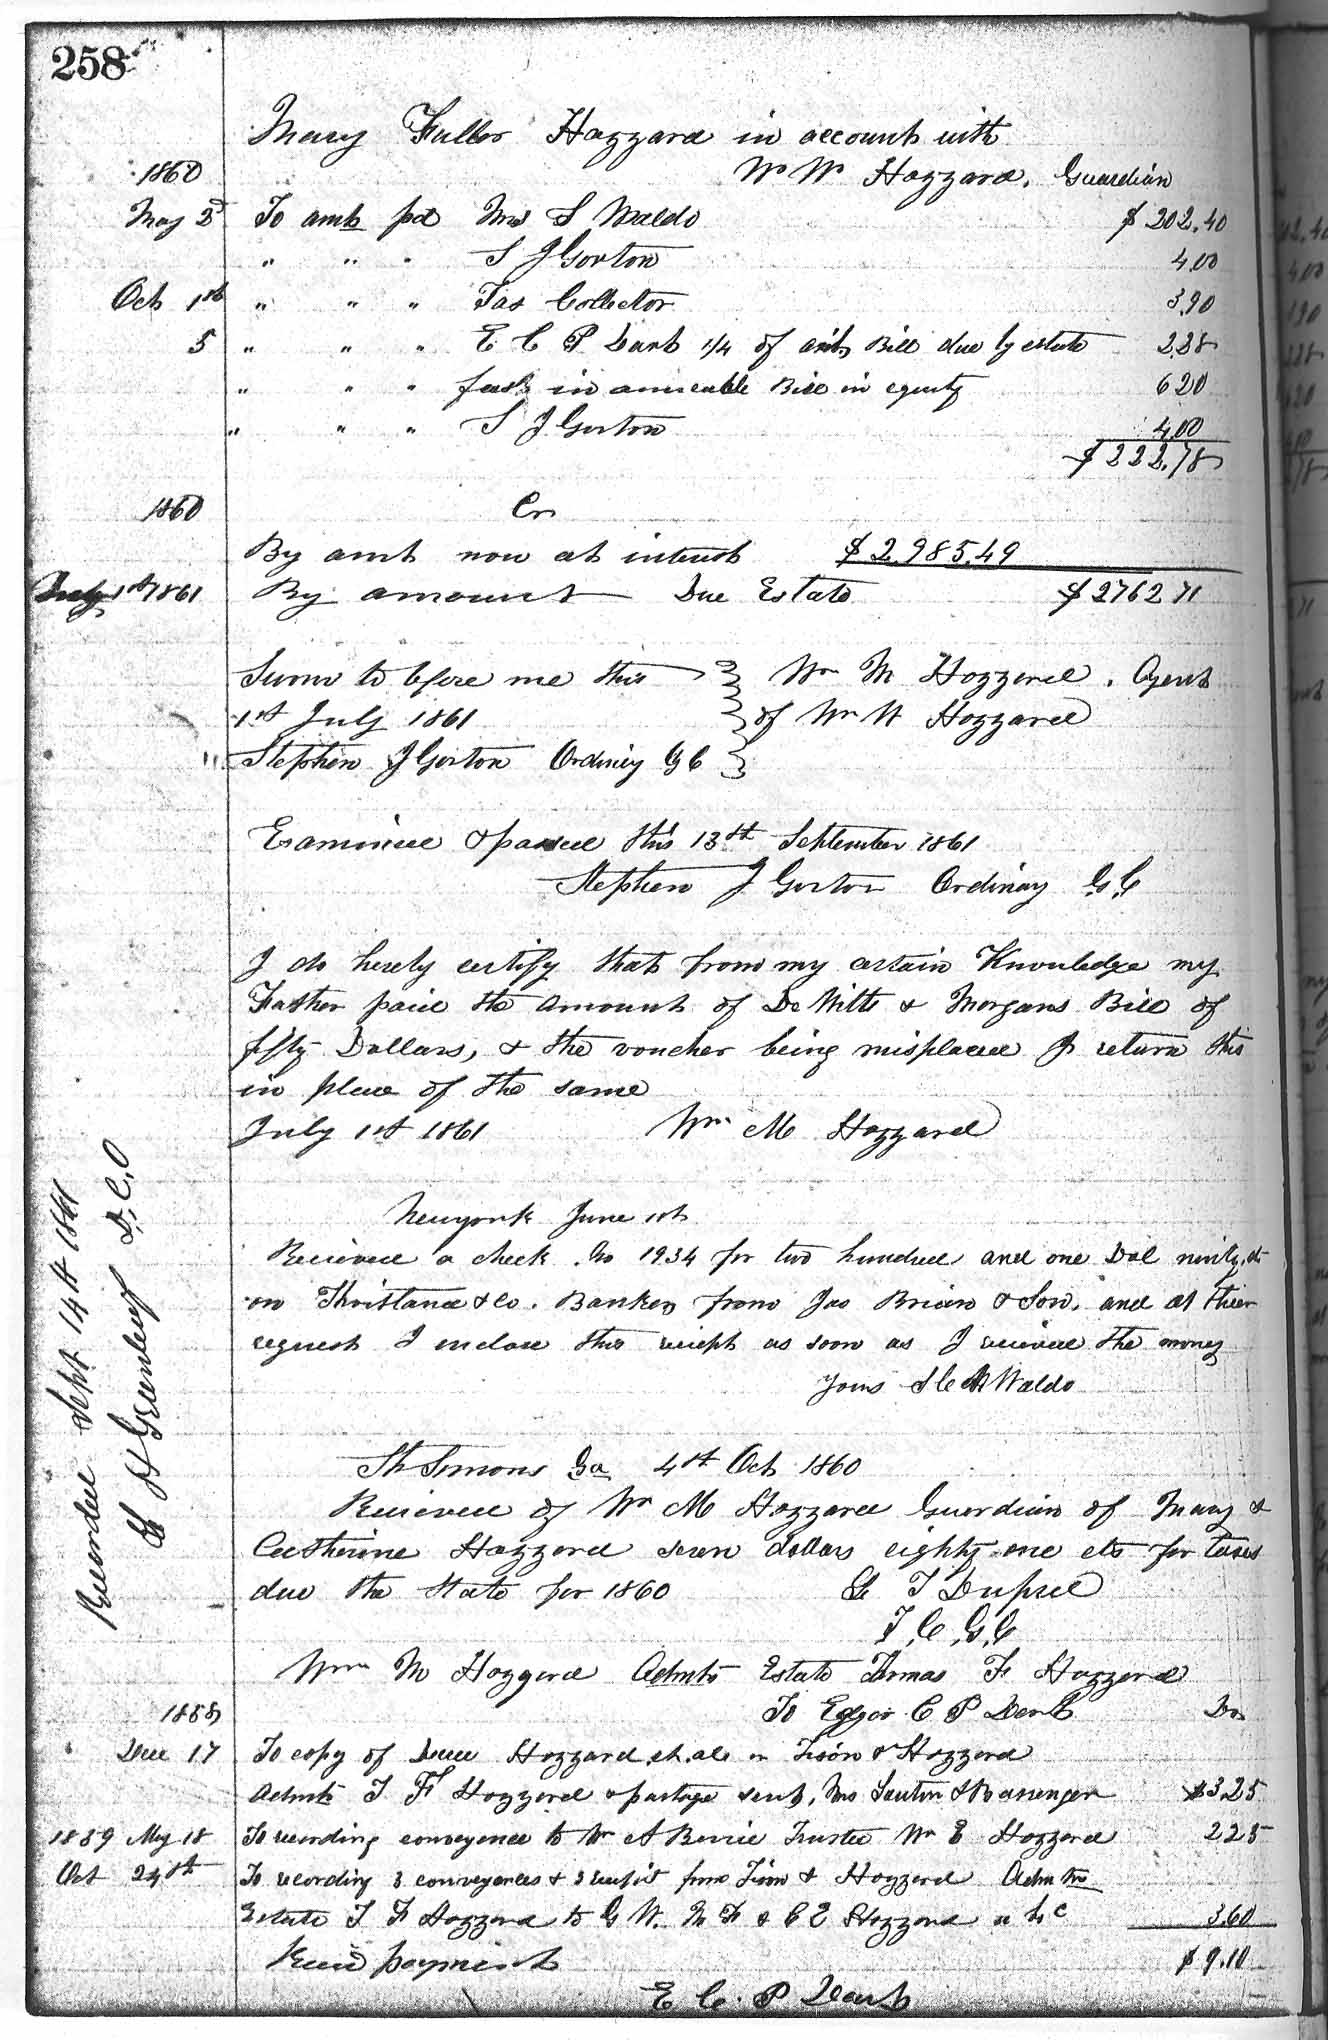 258
Mary Fuller Hazzard in account with
1860 Wm W Hazzard, Guardian
May 3d To amt pd Mrs S Waldo $ 202.40
" " " S J Gorton 4,00
Oct 1st " " " Tax Collector 3,90
5 " " " E C P Dart 1/4 of an's Bill due by estate 2,28
" " " fees in amicable Bill in equity 6 20
" " " S J Gorton 4,00
$ 222,78
1860 Cr
By amt now at interest $ 2,985,49
July 1st 1861 By amount Due Estate $ 2762 71
Sworn to before me this Wm M Hazzard, Agent
1st July 1861 of Wm W Hazzard
Stephen J Gorton Ordinary G C
Examined & passed this 13th September 1861
Stephen J Gorton Ordinary G.C
I do hereby certify that from my certain Knowledge my
Father paid the amount of DeWitts & Morgans Bill of
fifty Dollars, & the voucher being misplaced I return this
in place of the same
July 1st 1861 Wm M Hazzard
Newyork June 1st
Recieved a check No 1934 for two hundred and one Dol ninty ct
on & Co. Bankers from Jas & Son, and at their
request I enclose this reciept as soon as I recieved the money
Yours S C Waldo
St Simons Ga 4st Oct 1860
Recieved of Wm M Hazzard Guardian of Mary &
Catherine Hazzard seven dollars eighty one cts for taxes
due the State for 1860 T Dupree
T.C.G.C
Wm M Hazzard Admtr Estate Thomas F Hazzard
1858 To Edgar C P Dart Dr
Dec 17 To copy of Decree Hazzard et als Tison & Hazzard
Admtr T F Hazzard & postage sent, $3,25
1859 May 18 To recording conveyance to Wm A Trustee Wm E Hazzard 2 25
Oct 24th To recording 3 conveyances & from Tison & Hazzard Admtrs
Estate T F Hazzard to G W. M F & C E Hazzard 3,60
Recd payment $ 9.10
E C. P Dart
Recorded Sept 14th 1861
H Greenleaf D.C.O